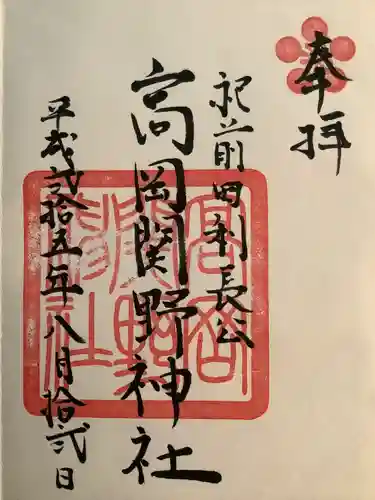 奉拝
祀前田利長公
高岡関野神社
平成弐拾五年八月拾弐日
高岡関野神社